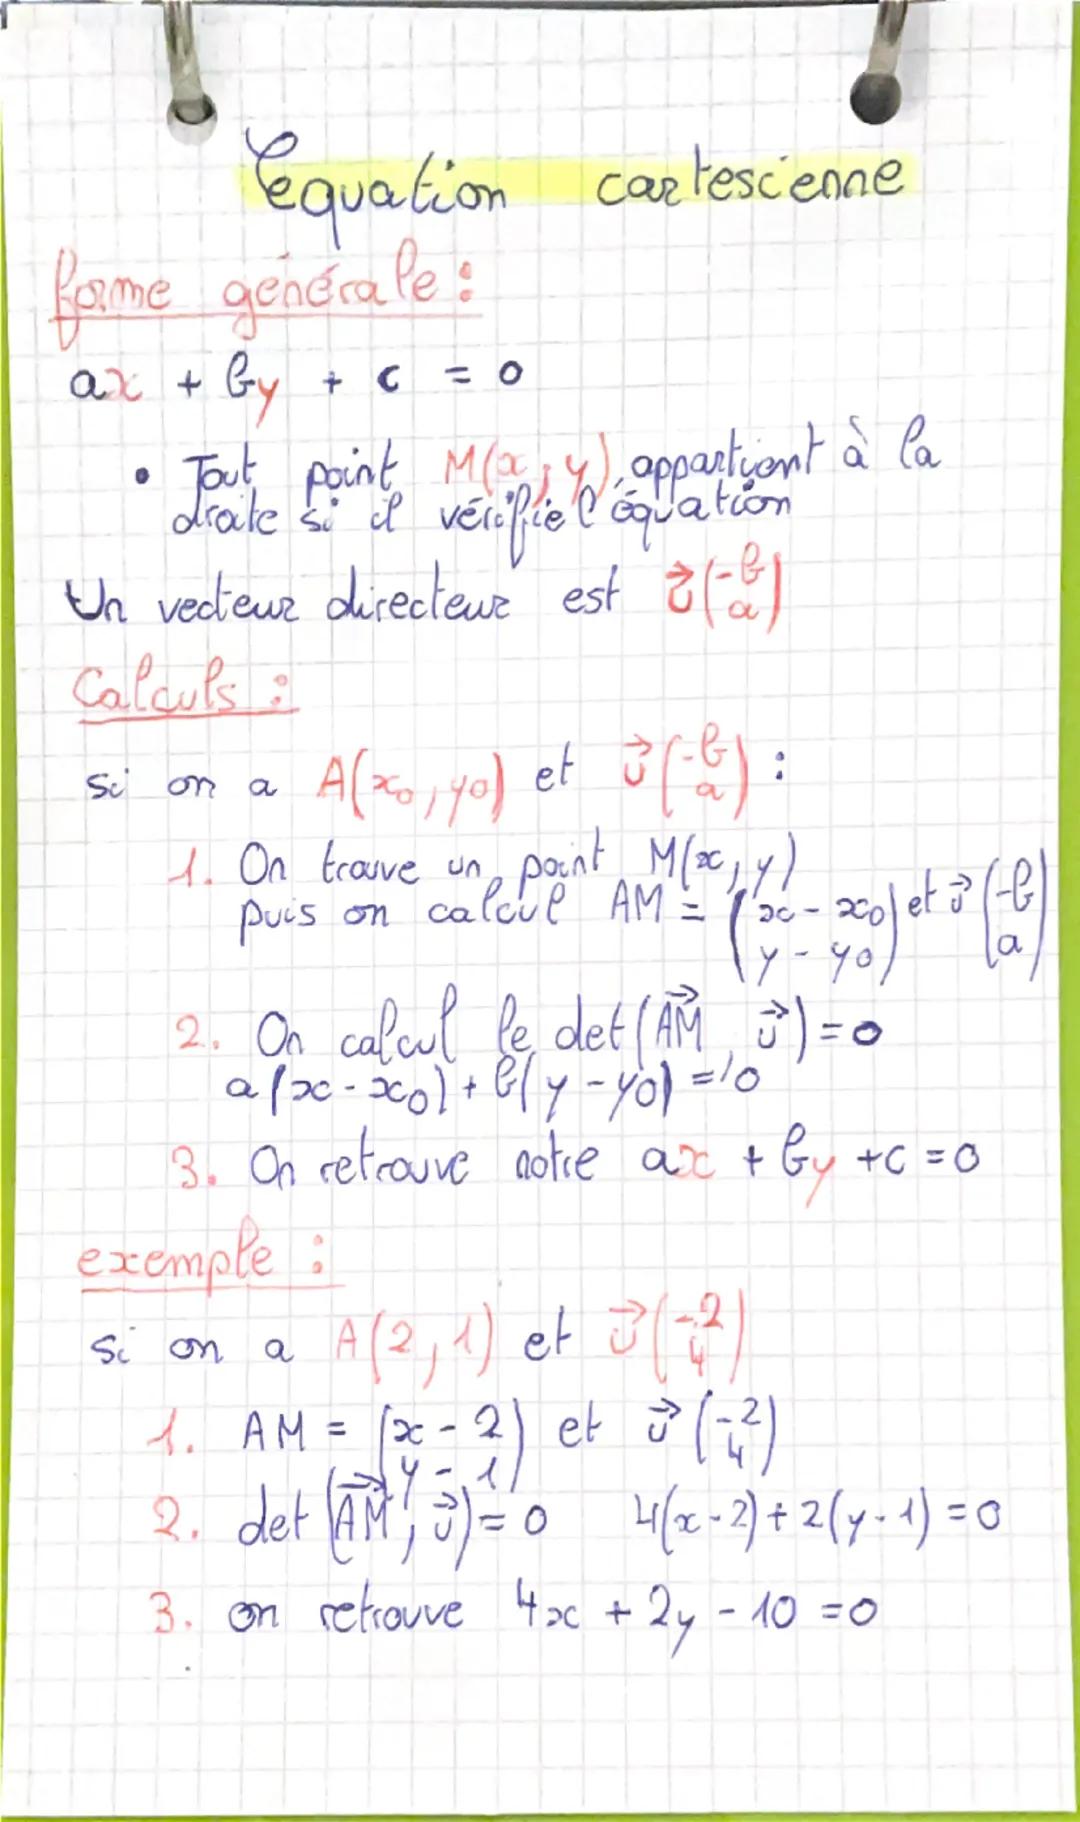 l'equation cartescienne
forme générale :
ax + by + c = 0
• Tout point M(x ; y), appartient à la
droite si il vérifie l'équation
Un vecteur directeur est u⃗(-b a)
Calculs :
si on a A(x₀, y0) et u⃗(-b a) :
1. On trouve un point M(x, y)
puis on calcul AM = (x - x0 y - y0) et u⃗(-b a)
2. On calcul le det(AM⃗ u⃗) = 0
a(x - x0) + b(y - y0) = 0
3. On retrouve notre ax + by + c = 0
exemple :
si on a A(2, 1) et u⃗(-2 4)
1. AM = (x - 2 y - 1) et u⃗(-2 4)
2. det(AM⃗, u⃗) = 0 4(x - 2) + 2(y - 1) = 0
3. on retrouve 4x + 2y - 10 = 0